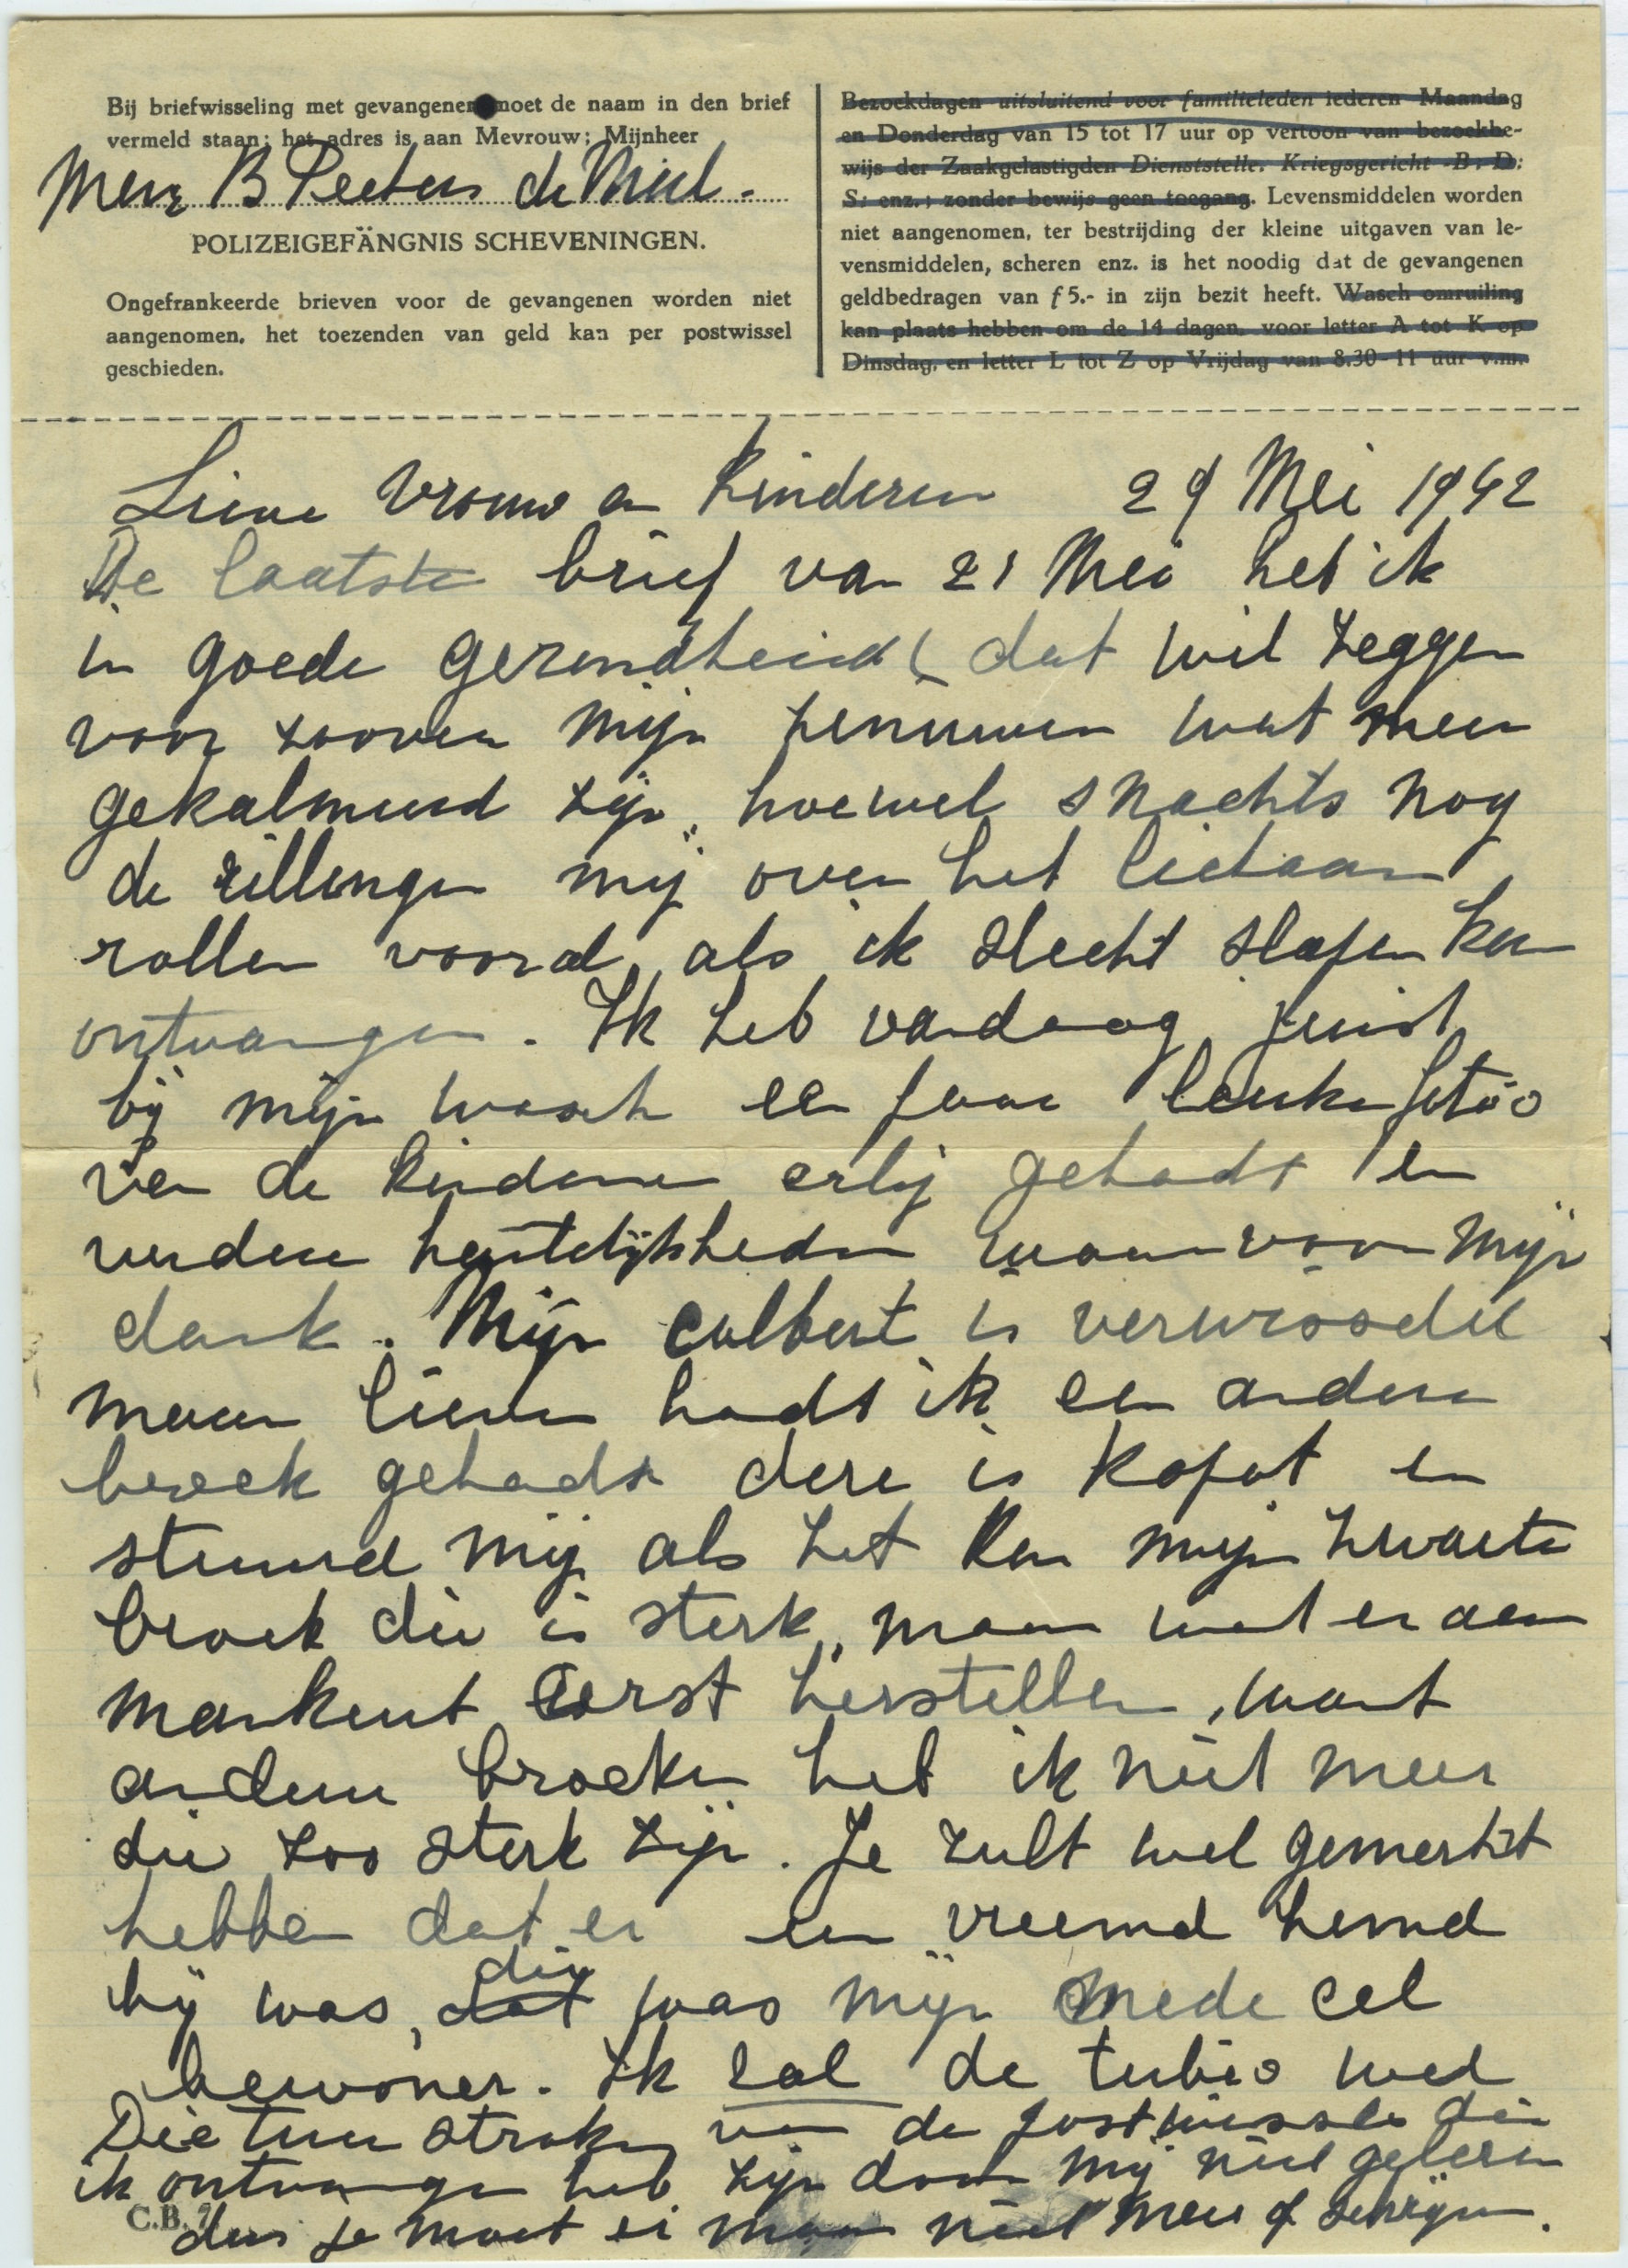 Bij briefwisseling met gevangenen moet de naam in den brief
vermeld staan; het adres is aan Mevrouw; Mijnheer
B Peeters de
POLIZEIGEFÄNGNIS SCHEVENINGEN.
Ongefrankeerde brieven voor de gevangenen worden niet
aangenomen, het toezenden van geld kan per postwissel
geschieden.
Bezoekdagen uitsluitend voor familieleden iederen Maandag
en Donderdag van 15 tot 17 uur op vertoon van bezoekbe-
wijs der Zaakgelastigden Dienststelle. Kriegsgericht B: D:
S: enz.; zonder bewijs geen toegang. Levensmiddelen worden
niet aangenomen, ter bestrijding der kleine uitgaven van le-
vensmiddelen, scheren enz. is het noodig dat de gevangenen
geldbedragen van f 5.- in zijn bezit heeft. Wasch omruiling
kan plaats hebben om de 14 dagen. voor letter A tot K op
Dinsdag, en letter L tot Z op Vrijdag van 8.30-11 uur v.m.
Lieve Vrouw en Kinderen 29 Mei 1942
De laatste brief van 21 Mei heb ik
in goede gezondheid ( dat wil zeggen
voor zoover mijn zenuwen wat meer
gekalmeerd zijn, hoewel snachts nog
de rillingen mij over het lichaam
rollen vooral als ik slecht slapen kan
ontvangen. Ik heb vandaag juist
bij mijn wasch een paar leuke foto's
van de kinderen erbij gehadt en
verdere hartelijkheden waarvoor mijn
dank. Mijn colbert is verwisseld
maar liever hadt ik een andere
broek gehadt deze is kapot en
stuurd mij als het kan mijn zwarte
broek die is sterk, maar wat er aan
mankeert eerst herstellen, want
andere broeken heb ik niet meer
die zoo sterk zijn. Je zult wel gemerkt
hebben dat er een vreemd hemd
bij was, dat die was mijn mede cel
bewoner. Ik zal de tubes wel
Die twee stroken van de postwissels die
ik ontvangen heb zijn door mij niet gelezen
dus je moet er maar niet meer op schrijven.
C.B. 7